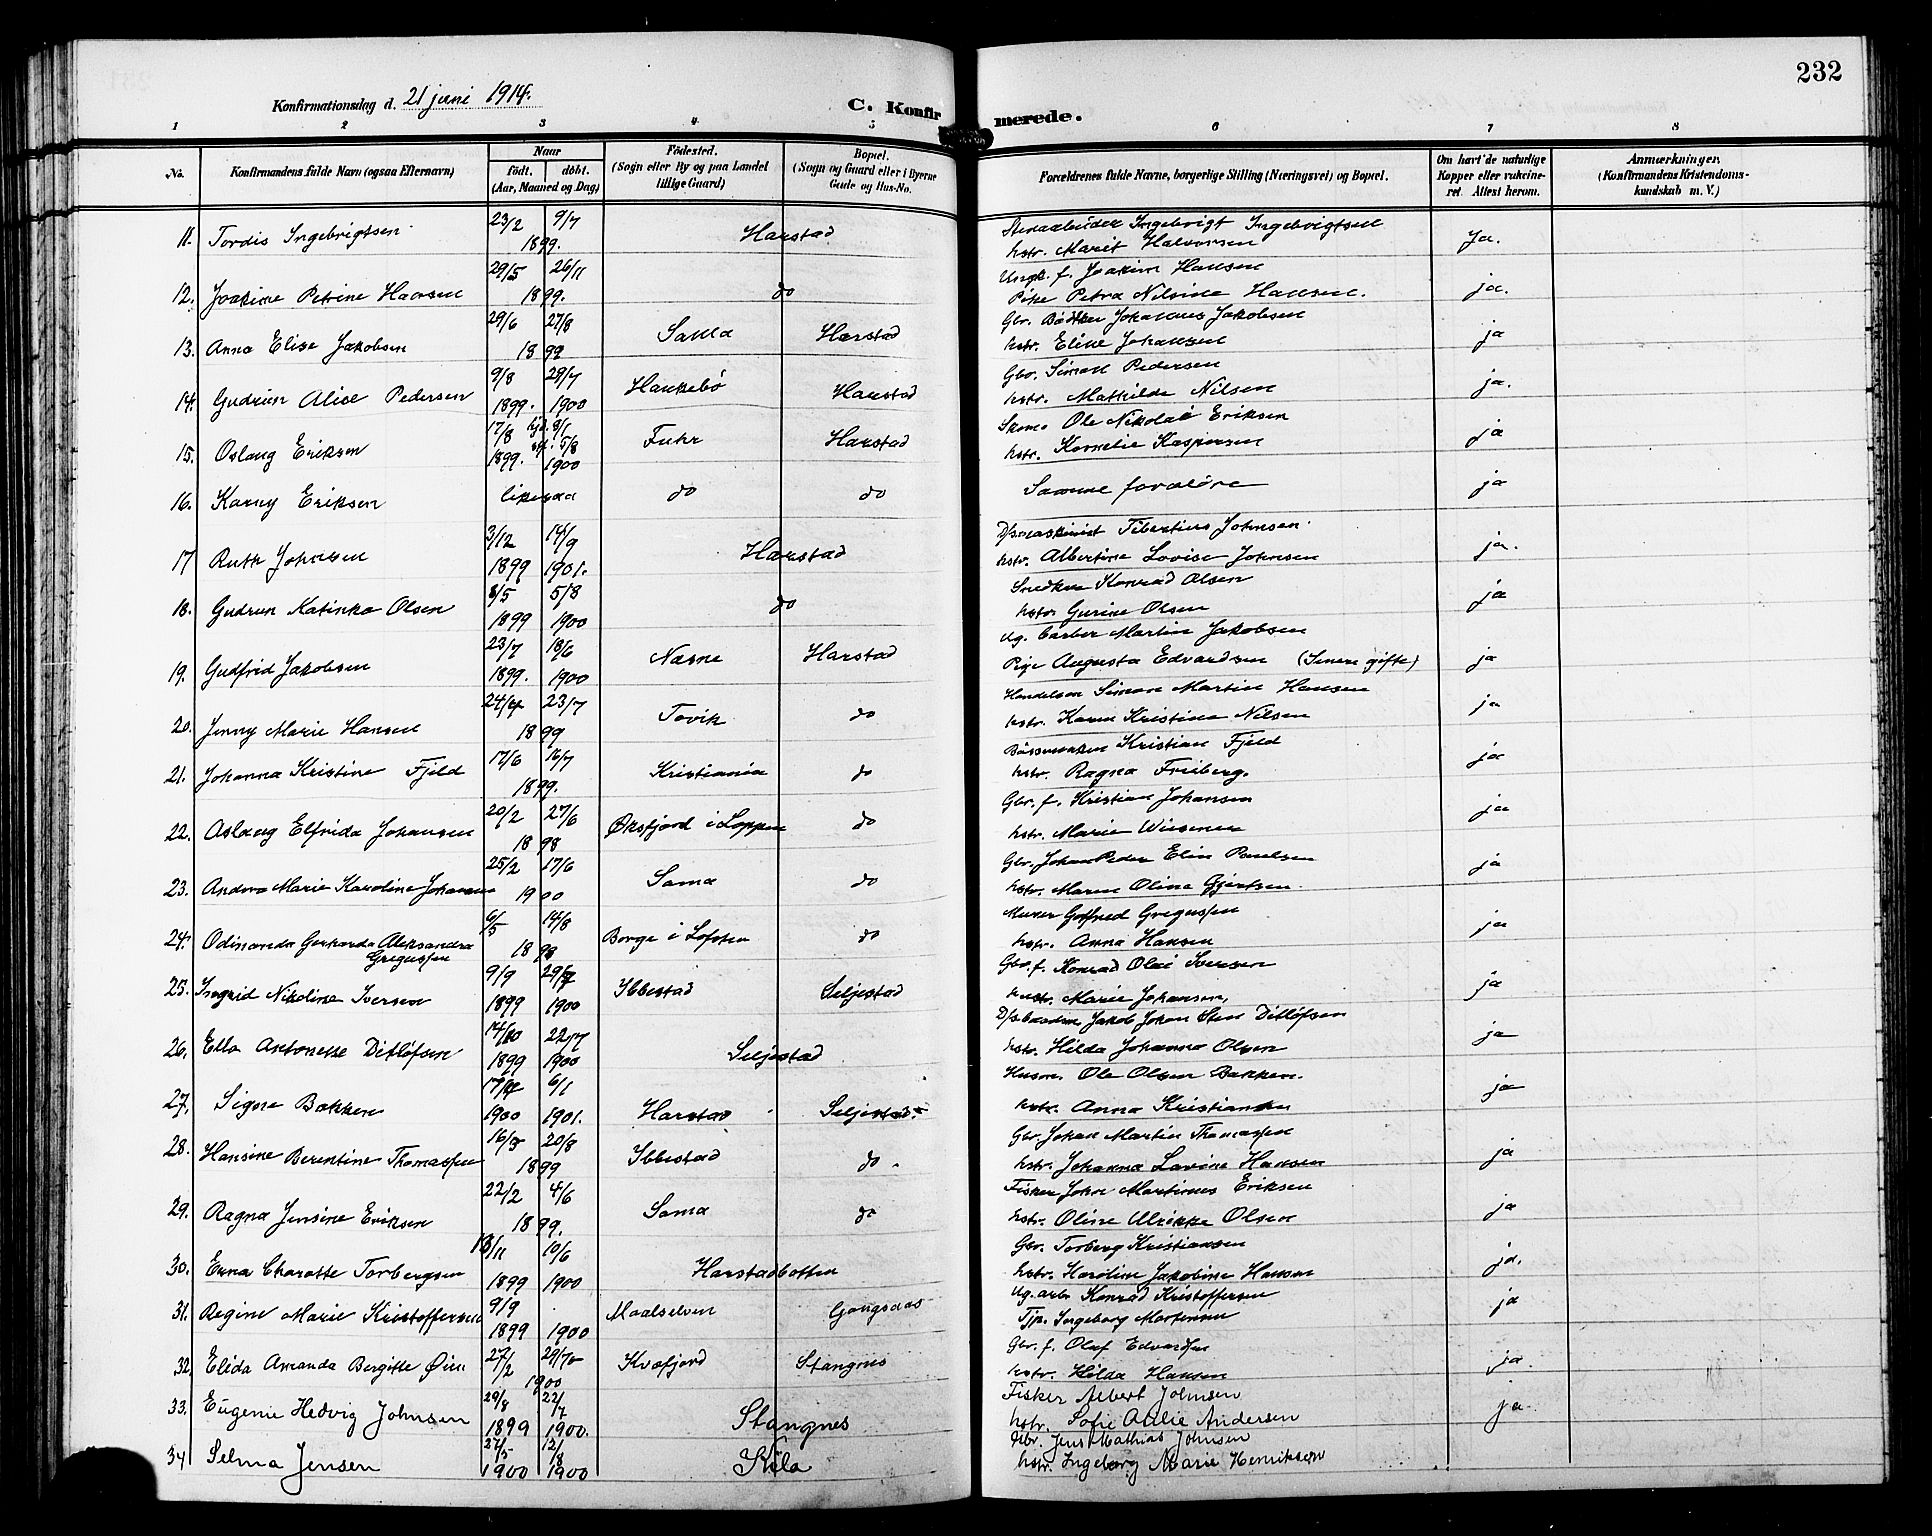 232
Konfirmationsdag d. 21 juni 1914.
C. Konfirmerede.
1 2 3 4 5 6 7 8
No.
Konfirmandens fulde Navn (ogsaa Efternavn)
Naar
født. døbt.
(Aar, Maaned og Dag)
Fødested.
(Sogn eller By og paa Landet
tillige Gaard)
Bopæl.
(Sogn og Gaard eller i Byerne
Gade og Hus-No.
Forældrenes fulde Navne, borgerlige Stilling (Næringsvei) og Bopæl.
Om havt de naturlige
Kopper eller vakcine-
ret. Attest herom.
Anmærkninger.
(Konfirmandens Kristendoms-
kundskab m. V.)
23/2 9/7 Ingebrigt Ingebrigtsen
11. Tordis Ingebrigtsen 1899. Harstad hstr. Marit Halvorsen Ja.
29/5 26/11 Ungk. f. Joakim Hansen
12. Joakime Petrine Hansen 1899. do Pike Petra Nilsine Hansen. ja.
29/6 27/8 Gbr. Bødker Johannes Jakobsen
13. Anna Elise Jakobsen 1899 Sama Harstad hstr. Eline Johansen ja
9/8 29/7 Gbr. Simon Pedersen
14. Gudrun Alise Pedersen 1899. 1900 Haukebø Harstad hstr. Mathilde Nilsen ja.
17/8 hjd. 3/1 Skom. Ole Nikolai Eriksen
stf. 5/8
15. Oslaug Eriksen 1899. 1900 Fuhr Harstad hstr. Kornelie Kaspersen ja
16. Karny Eriksen likesaa do do Samme foreldre ja
3/12 14/9 D/smaskinist Tibertius Johnsen
17 Ruth Johnsen 1899 1901. Harstad hstr. Albertine Lovise Johnsen ja.
8/5 5/8 Snedker Konrad Olsen
18. Gudrun Katinka Olsen 1899 1900 do hstr. Gurine Olsen ja
23/7 18/6 Ug. barber Martin Jakobsen
19. Gudfrid Jakobsen 1899. 1900 Næsne Harstad Pige Augusta Edvardsen (Senere gifte) ja
24/4 23/7 Handelsm Simon Martin Hansen
20. Jenny Marie Hansen 1899 Tovik do hstr. Karen Kristina Nilsen ja
17/6 16/7 Bøssemaker Kristian Fjeld
21. Johanna Kristine Fjeld 1899. Kristiania do hstr. Ragna Friberg. ja
20/2 27/6 Gbr. f. Kristian Johansen
22. Aslaug Elfrida Johansen 1898 Øksfjord i Loppen do hstr. Marie ja
25/2 17/6 Gbr. Johan Peder Elin Paulsen
23. Andrea Marie Karoline Johansen 1900 Sama do hstr. Maren Olina Gjertsen. ja
6/5 14/8 Murer Gotfred Gregussen
24. Odinanda Gerharda Aleksandra 1899 Borge i Lofoten do hstr. Anna Hansen ja
Gregussen
9/9 29/7 Gbr. f. Konrad Olai Iversen
25. Ingrid Nikoline Iversen 1899 1900 Ibbestad Seljestad hustr. Marie Johansen, ja
14/10 22/7 Jakob Johan Sten Ditløfsen
26. Ella Antonette Ditløfsen 1899 1900 Seljestad hstr. Hilda Johanna Olsen ja
17/4 6/1 Husm. Ole Olsen Bakken.
27. Signe Bakken 1900 1901. Harstad Seljestad. hstr. Anna Kristiansen ja
16/3 20/8 Gbr. Johan Martin Thomassen
28. Hansine Berentine Thomassen 1899 Ibbestad do. hstr. Johanna Lavine Hansen ja
22/2 4/6 Fisker John Martinus Eriksen
29. Ragna Jensine Eriksen 1899. Sama do hstr. Oline Ulrikke Olsen ja
13/11 10/6 Gbr. Torberg Kristiansen
30. Enna Charotte Torbergsen 1899 1900 Harstadbotten hstr. Karoline Jakobine Hansen ja.
9/9 Ug. arb. Konrad Kristoffersen
31. Regine Marie Kristoffersen 1899 1900 Maalselven Gangsaas Tjp. Ingeborg Mortensen ja
27/2 29/7 Gbr. f. Olaf Edvardsen
32. Elida Amanda Bergitte Øien 1900 Kvæfjord Stangnes hstr. Hilda Hansen ja.
29/8 22/7 Fisker Albert Johnsen
33. Eugenie Hedvig Johnsen 1899 1900. Stangnes hstr. Sofie Aulie Andersen ja.
27/5 12/8 Gbr. Jens Mathias Johnsen
34 Selma Jensen 1900 1900 Kila hstr. Ingeborg Marie Henriksen